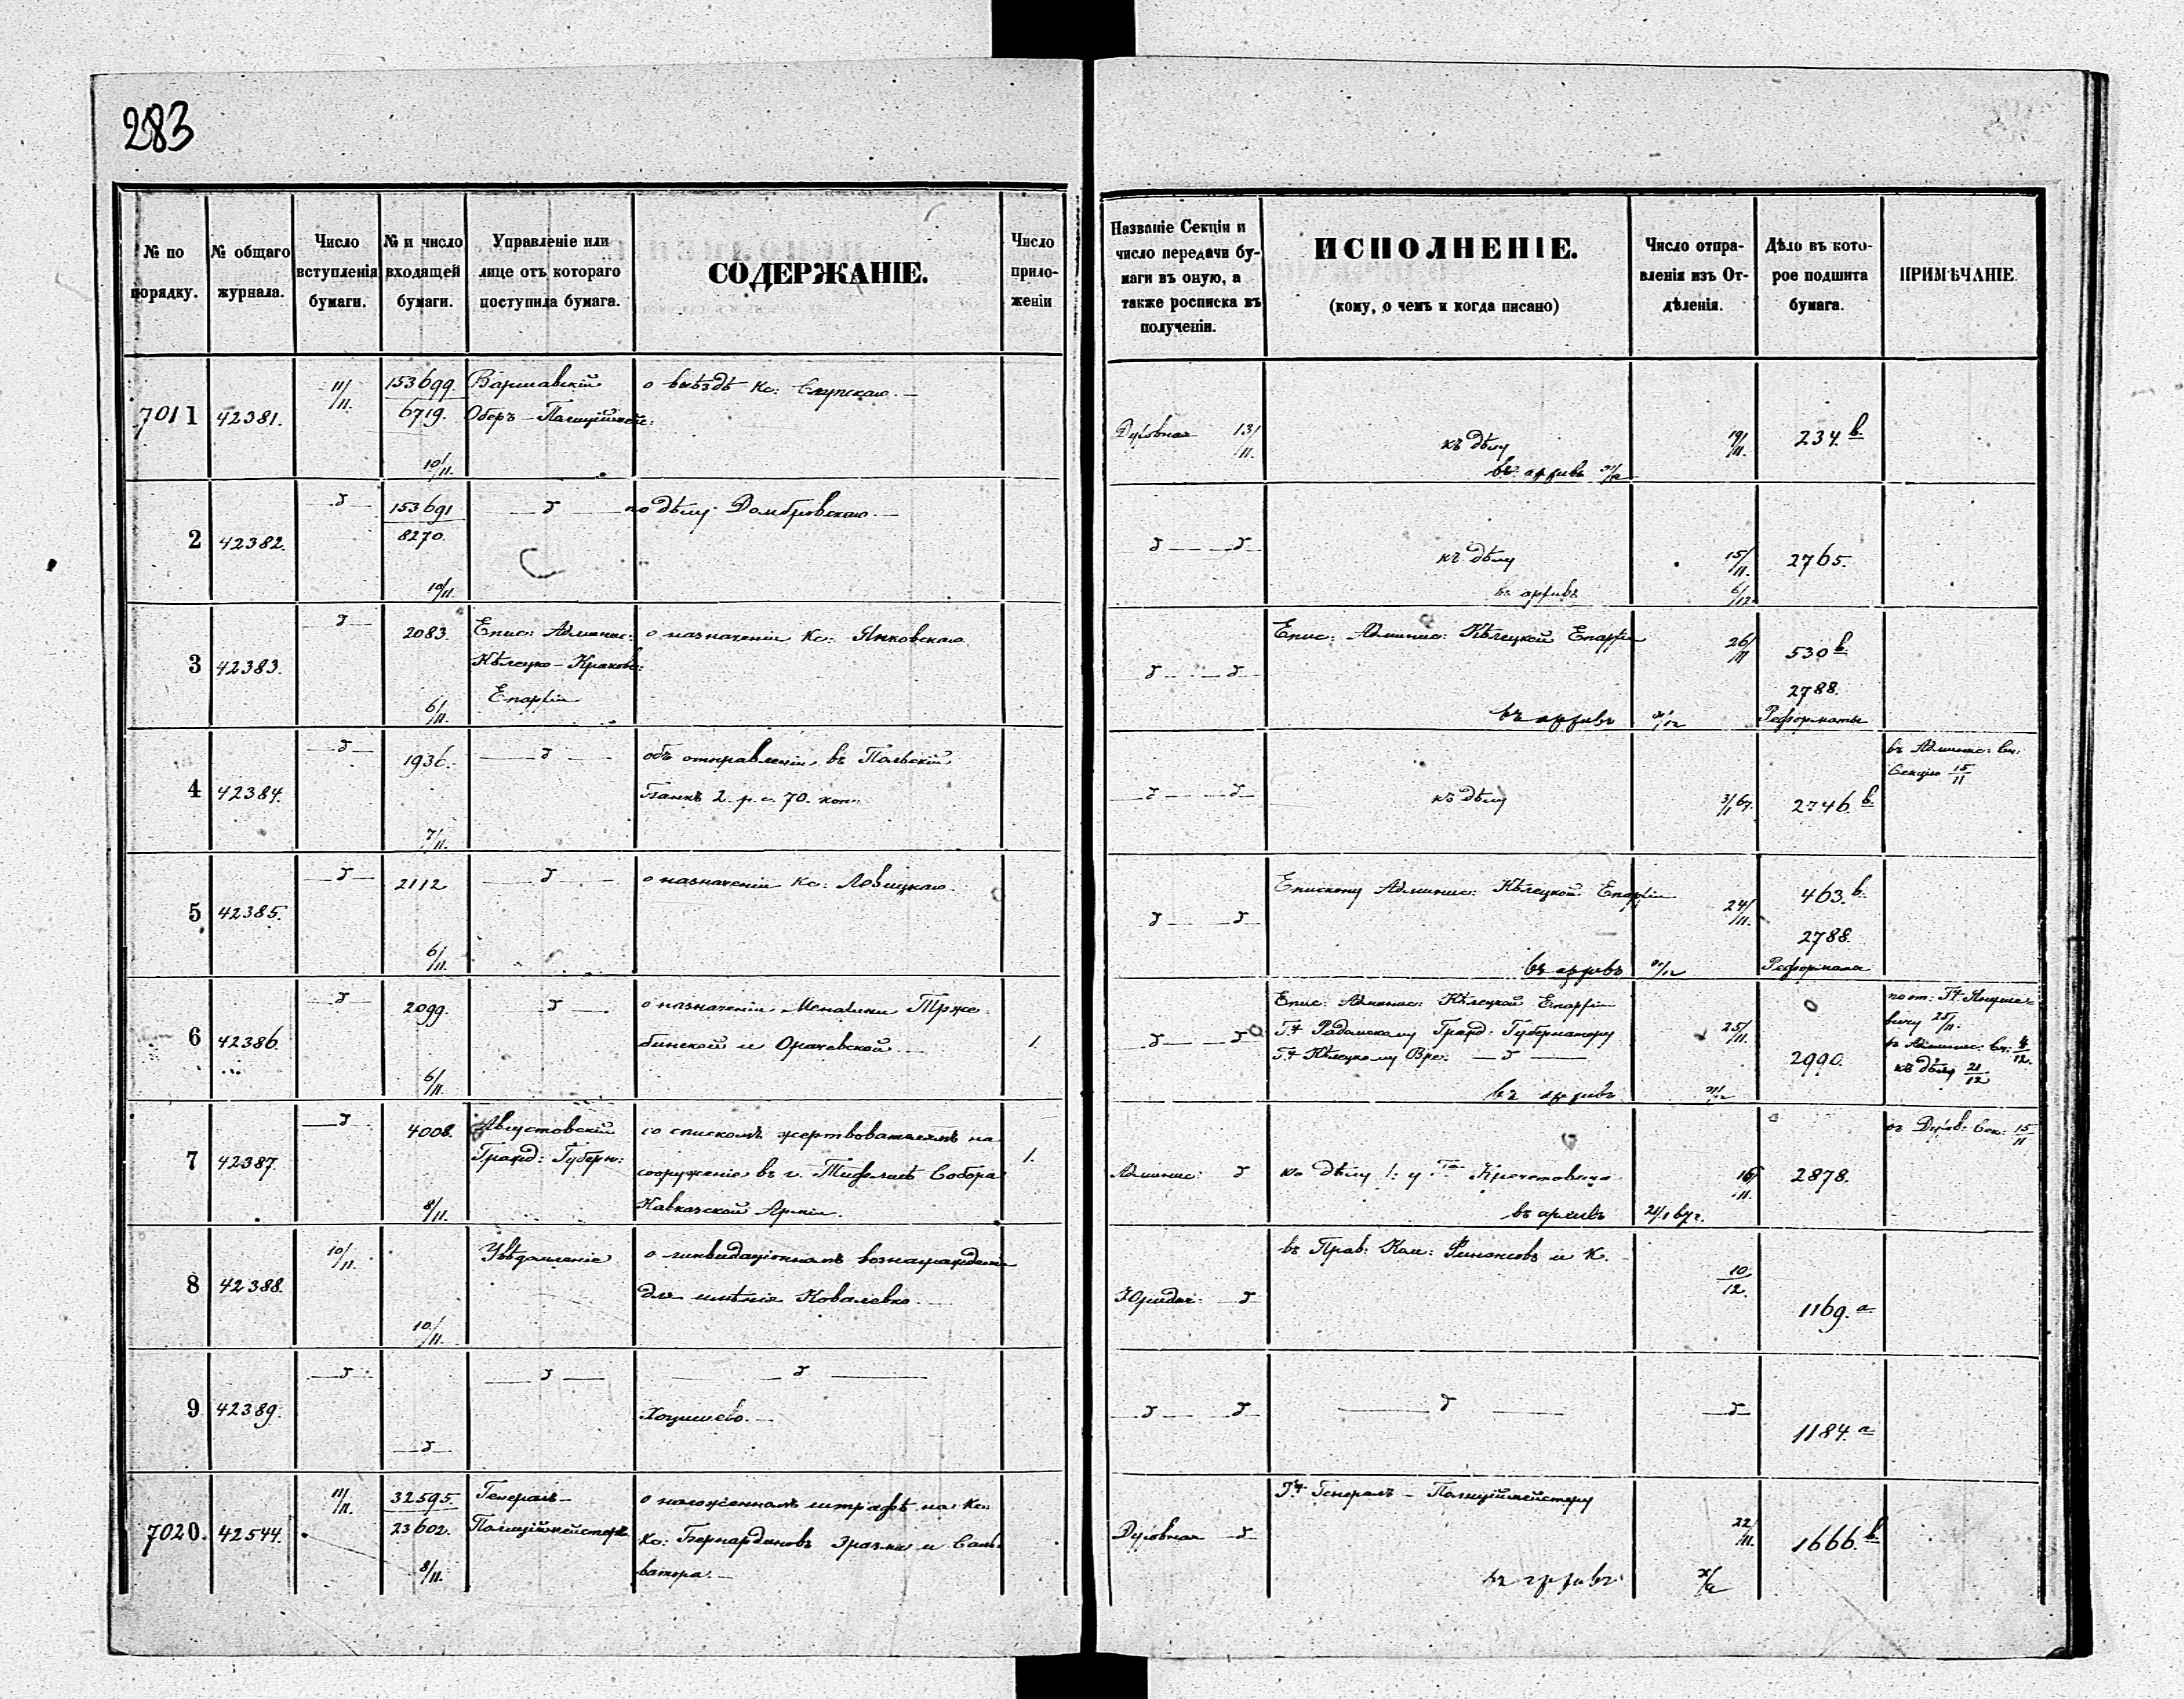 283
№ по порядку.
№ общаго журнала.
Число вступленія бумаги.
№ и число входящей бумаги.
Управленіе или лице отъ котораго поступила бумага.
СОДЕРЖАНІЕ.
Число приложеніи
Названіе Секціи и число передачи бумаги въ оную, а также росписка въ полученіи.
ИСПОЛНЕНІЕ.
(кому, о чемъ и когда писано)
Число отправленія изъ Отдѣленія.
Дѣло въ которое подшита бумага.
ПРИМѢЧАНІЕ
7011 42381. 11/11. 153699. Варшавскій о выѣздѣ Кс:
6719. Оберъ-Полиціймейс:
10/11.
Духовная 13/11. къ дѣлу 19/11. 234.в.
въ архивъ
2 42382. 153691 по дѣлу Домбровскаго.
8270.
10/11.
къ дѣлу 15/11. 2765.
въ архивъ 6/12
3 42383. 2083. Епис: Админис: о назначеніи Кс: Янковскаго.
Кѣлецко-Краковс:
6/11. Епархіи
Епис: Админис: Кѣлецкой Епархіи 26/11 530в.
2788.
въ архивъ Реформаты
4 42384. 1936. объ отправленіи въ Польскій
Банкъ 2. р. с. 70. коп.
7/11.
къ дѣлу 3/1 67. 2746.в.
въ Админис: Сек:
Секцію 15/11
5 42385. 2112 о назначеніи Кс: Ловицкаго.
6/11.
Епископу Админис: Кѣлецкой Епархіи 24/11. 463.в.
2788.
въ архивъ Реформаты
6 42386. 2099. о назначеніи Трже-
бинской и 1.
6/11.
Епис: Админис: Кѣлецкой Епархіи
Гну Радомскому Гражд: Губернатору 25/11.
Гну Кѣлецкому Вре: 2990.
въ архивъ
25/11.
въ Админис: 4/12.
къ дѣлу 21/12
7 42387. 4008. Августовскій со спискомъ жертвователямъ на
Гражд: Губерн: сооруженіе въ г. Тифлисѣ Собора 1.
8/11. Кавказской Арміи.
Админис: къ дѣлу 16/11. 2878.
въ архивъ
въ Духов: Сек: 15/11
8 42388. 10/11. Увѣдомленіе о ликвидаціонномъ вознагражденіи
для имѣнія Ковалевко.
10/11.
Юридич: въ Прав: Ком: Финансовъ и К. 10/12. 1169.а
9 42389.
1184.а
7020. 42544. 11/11. 32595. Генералъ- о наложенномъ штрафѣ на Кс:
23602. Полиціймейстеръ Кс: Бернардиновъ и Саль-
8/11. ватора.
Духовная Гну Генералъ-Полиціймейстеру 22/11. 1666.в.
въ архивъ